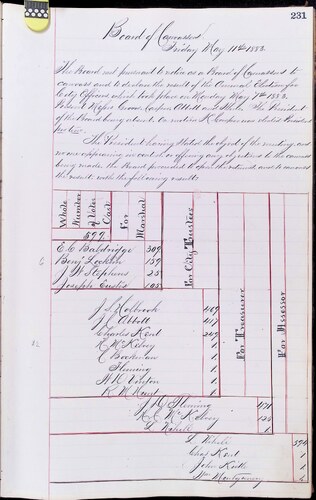 231
Board of Canvassers
Friday May 11th 1882
The Board met pursuant to notice as a Board of Canvassers to
canvass and to declare the result of the General Election for
City Officers which took place on Monday May 7th 1882.
Present Messrs Crow Cooper Abbott and The President
of the Board being absent On motion H. Cooper was elected President
pro tem.
The President having stated the object of the meeting, and
no one appearing to contest or offering any objections to the canvass
being made the Board proceeded to open the returns and to canvass
the result with the following result:
Whole Number of Votes Cast
For Marshal
For City Trustees
For Treasurer
For Assessor
599
E. C. Baldridge 309
Benj Lockton 159
J W Stephens 25
Joseph Eustis 105
J. L. Holbrook
J. Abbott 417
Charles Kent 249
H. McKelvy 1
C Bookman 1
Fleming 1
W. H. Vinton 1
K. W. Hunt 1
J. H. Fleming 471
H. C. McKelvy 125
L. Robell 1
L. Robell 594
Chas Kent 1
John Keith 1
Wm Montgomery 1